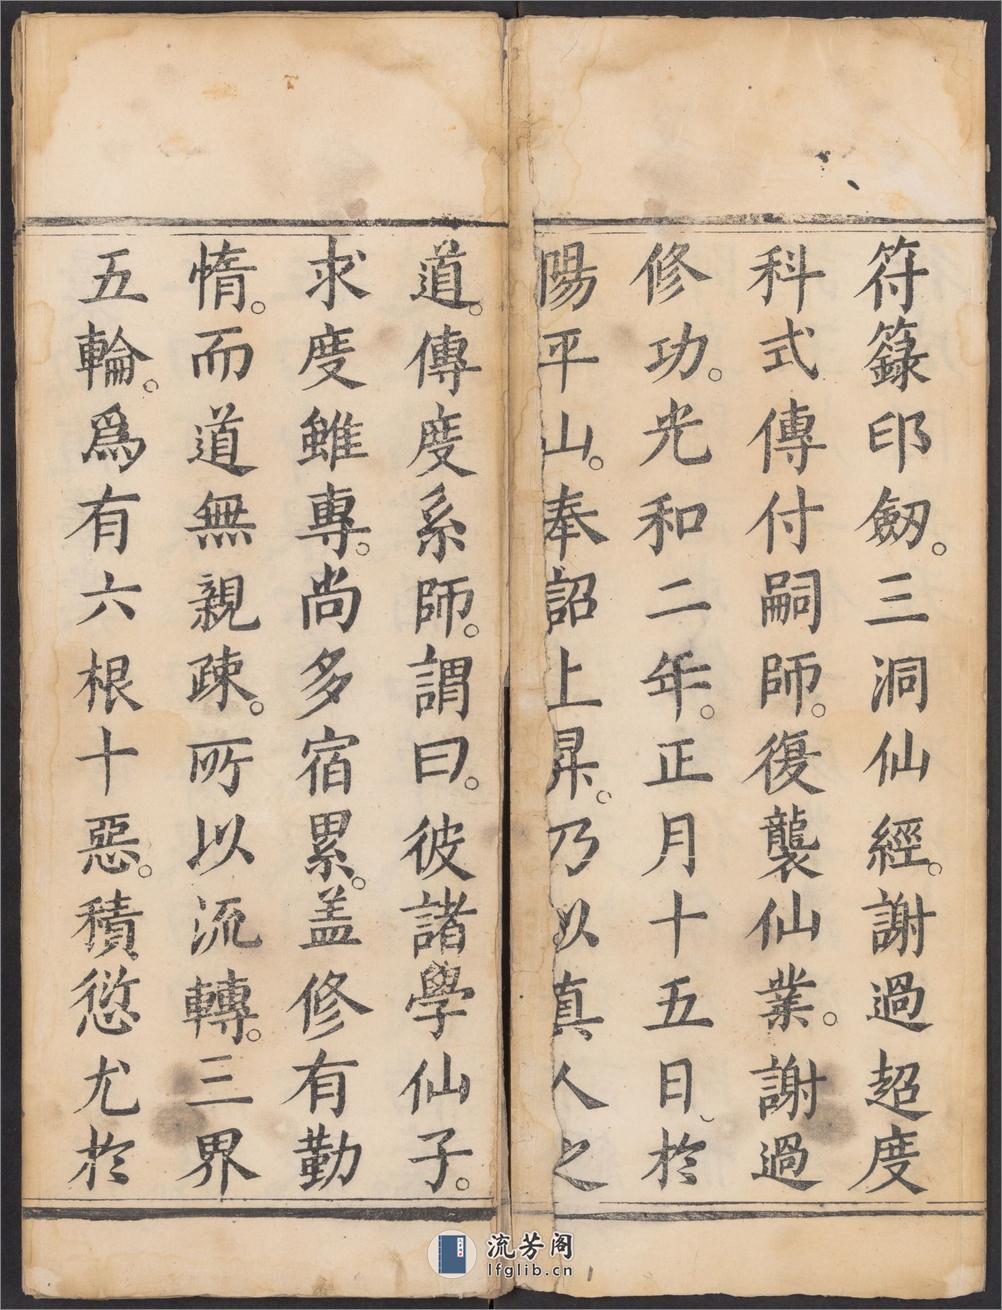 符籙印劔。三洞仙經。謝過超度
科式傳付嗣師。復襲仙業。謝過
修功。光和二年。正月十五日、於
陽平山。奉詔上昇。乃以真人之
道。傳度系師。謂曰。彼諸學仙子。
求度雖專。尚多宿累。盖修有勤
惰。而道無親疎。所以流轉。三界
五輪。爲有六根十惡。積愆尤於
流芳阁
lfglib.cn